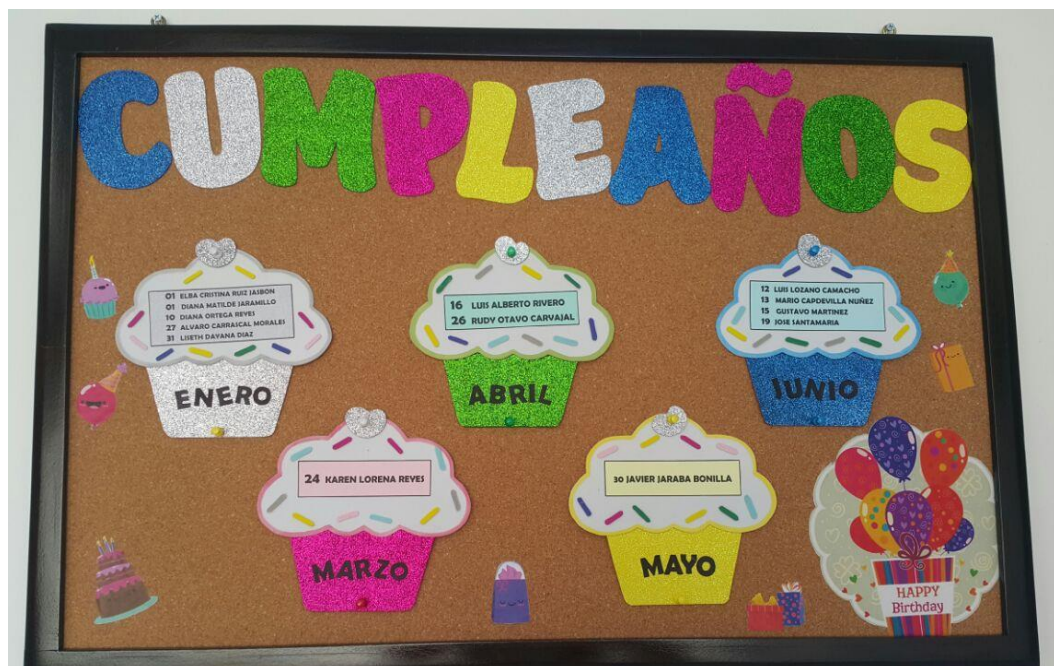 CUMPLEAÑOS
01 ELBA CRISTINA RUIZ JASBON
01 DIANA MATILDE JARAMILLO
10 DIANA ORTEGA REYES
27 ALVARO CARRASCAL MORALES
31 LISETH DAYANA DIAZ
ENERO
16 LUIS ALBERTO RIVERO
26 RUDY OTAVO CARVAJAL
ABRIL
12 LUIS LOZANO CAMACHO
13 MARIO CAPDEVILLA NUÑEZ
15 GUSTAVO MARTINEZ
19 JOSE SANTAMARIA
JUNIO
24 KAREN LORENA REYES
MARZO
30 JAVIER JARABA BONILLA
MAYO
HAPPY
Birthday